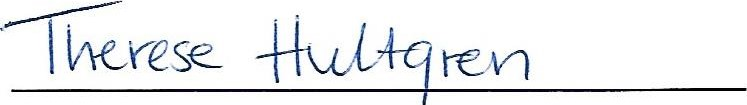 Therese Hultgren